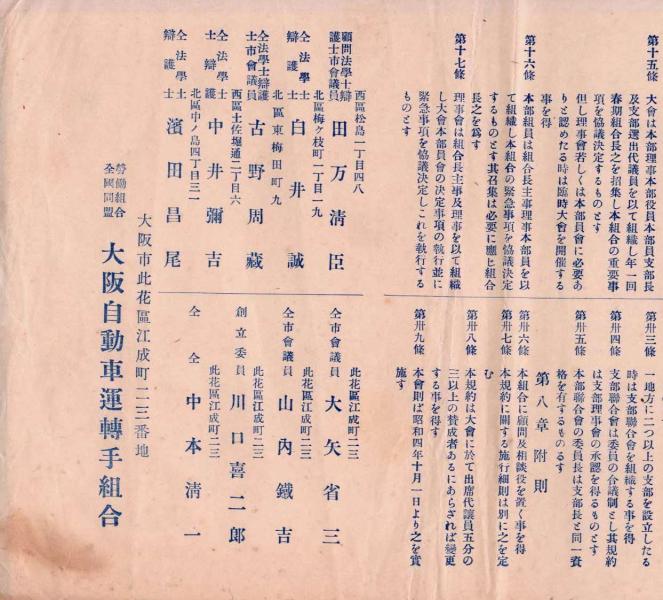 第十五條
大會は本部理事本部役員本部員支部長
及支部選出代議員を以て組織し年一回
春期組合長之を招集し本組合の重要事
項を協議決定するものとす
但し理事會若しくは本部員會に必要あ
りと認めたる時は臨時大會を開催する
事を得
第十六條
本部組員は組合長主事理事本部員を以
て組織し本組合の緊急事項を協議決定
するものとす其召集は必要に應じ組合
長之を爲す
第十七條
理事會は組合長主事及理事を以て組織
し大會本部員會の決定事項の執行並に
緊急事項を協議決定しこれを執行する
ものとす
第卅三條
一地方に二つ以上の支部を設立したる
時は支部聯合會を組織する事を得
第卅四條
支部聯合會は委員の合議制とし其規約
は支部理事會の承認を得るものとす
第卅五條
本部聯合會の委員長は支部長と同一資
格を有するものるす
第八章 附則
第卅六條
本組合に顧問及相談役を置く事を得
第卅七條
本規約に關する施行細則は別に之を定
む
第卅八條
本規約は大會に於て出席代議員五分の
三以上の賛成者あるにあらざれば變更
する事を得ず
第卅九條
本會則ば昭和四年十月一日より之を實
施す
西區松島一丁目四八
顧問法學士辯護士市會議員 田万清臣
北區梅ヶ枝町一丁目一九
仝法學士辯護士 白井誠
北區東梅田町九
仝法學士辯護士市會議員 古野周藏
西區土佐堀通二丁目六
仝法學士辯護士 中井彌吉
北區中ノ島四丁目三一
仝法學士辯護士 濱田昌尾
此花區江成町二三
仝市會議員 大矢省三
此花區江成町二三
仝市會議員 山內鐵吉
此花區江成町二三
創立委員 川口喜二郎
此花區江成町二三
仝 仝 中本淸一
大阪市此花區江成町二三番地
勞働組合全國同盟 大阪自動車運轉手組合